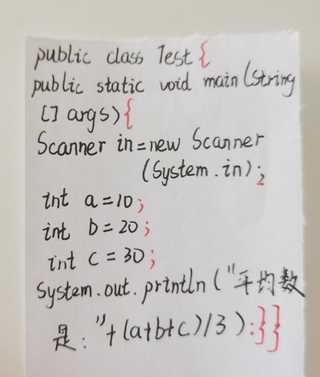 public class Test{
public static void main(String
[] args){
Scanner in=new Scanner
(System.in);
int a=10;
int b=20;
int c=30;
System.out.println("平均数
是:"+(a+b+c)/3):}}